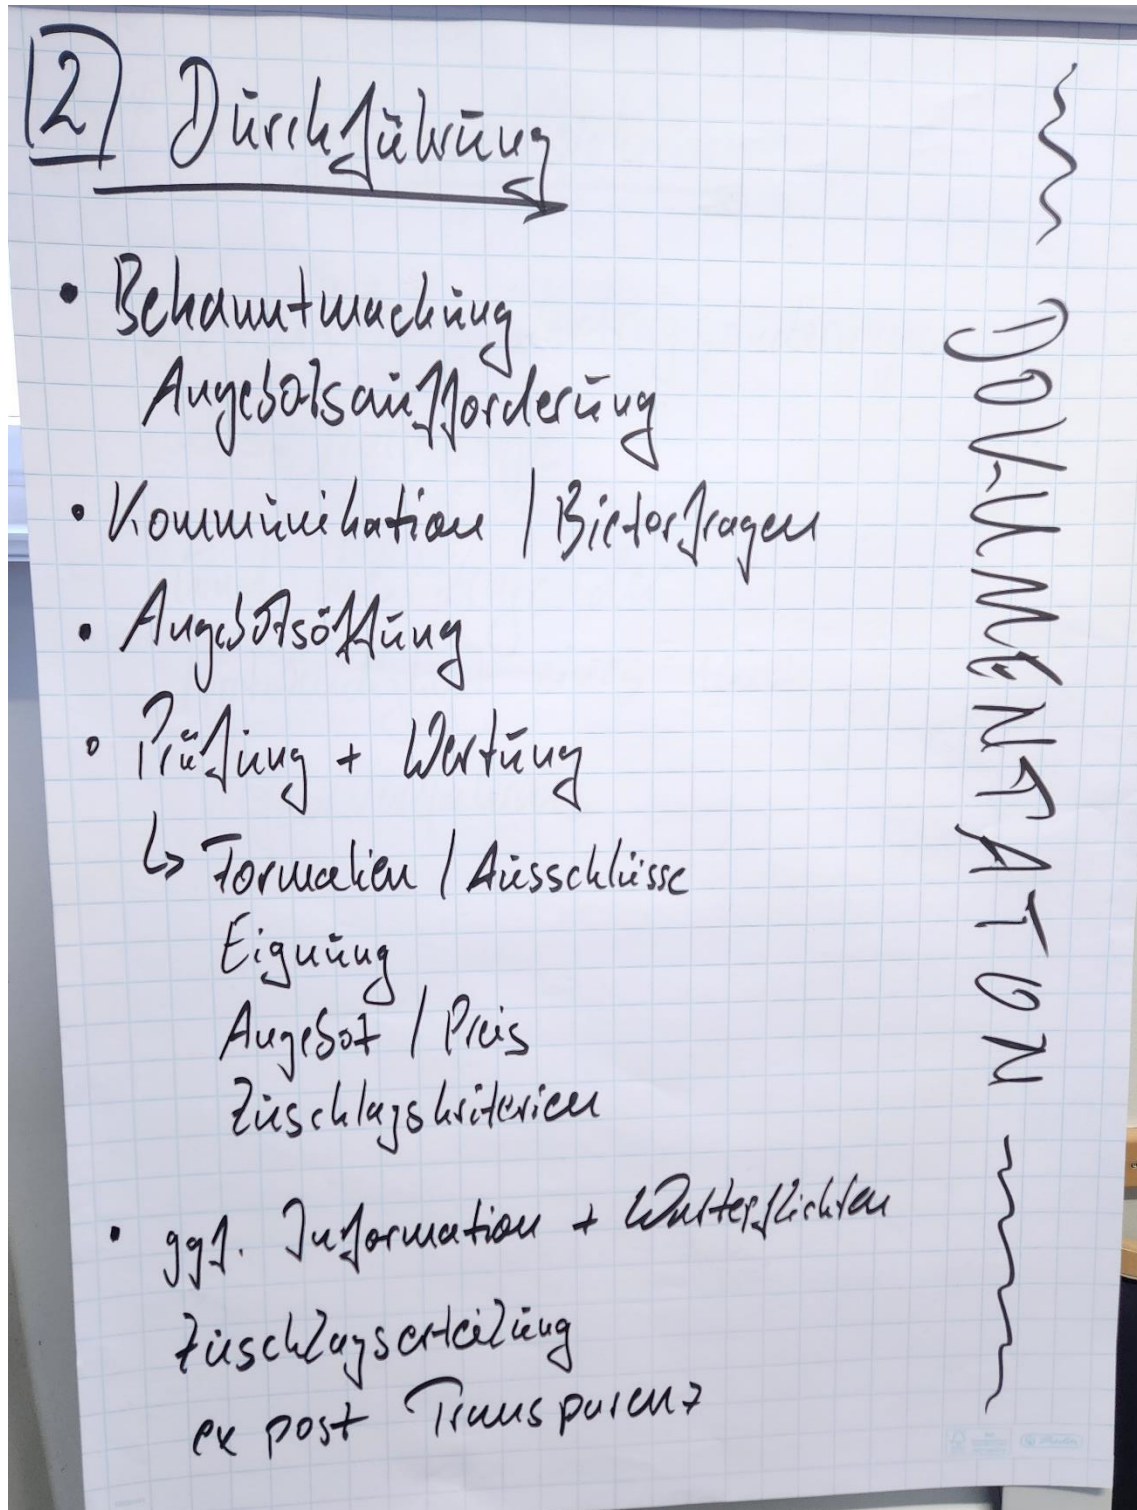 2 Durchführung
• Bekanntmachung
Angebotsaufforderung
• Kommunikation / Bieterfragen
• Angebotsöffnung
• Prüfung + Wertung
↳ Formalien / Ausschlüsse
Eignung
Angebot / Preis
Zuschlagskriterien
• ggf. Information + Wartepflichten
Zuschlagserteilung
ex post Transparenz
DOKUMENTATION